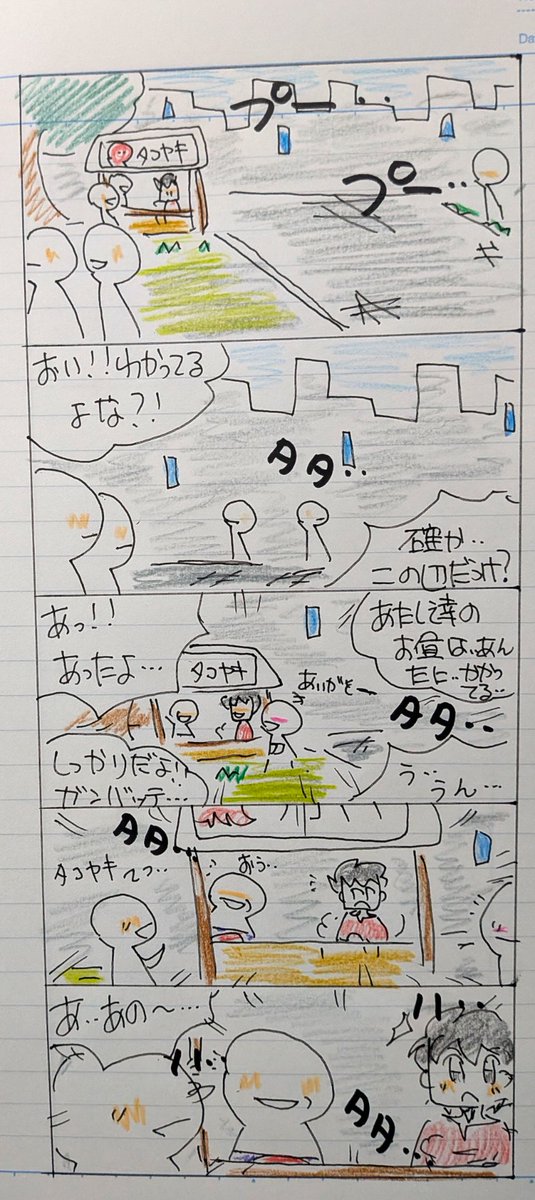 Da
プー‥
タコヤキ
プー‥
おい!!わかってる
よな?!
タタ‥
確か‥
この辺だっけ?
あっ!!
あったよ…
あたし達の
お昼は、あん
たに‥かかっ
てる…
タコヤキ
タタ‥
しっかりだよ!
ガンバッテ…
う‥
うん…
タタ‥
タコヤキ
おう‥
あ‥あのー…
タタ‥